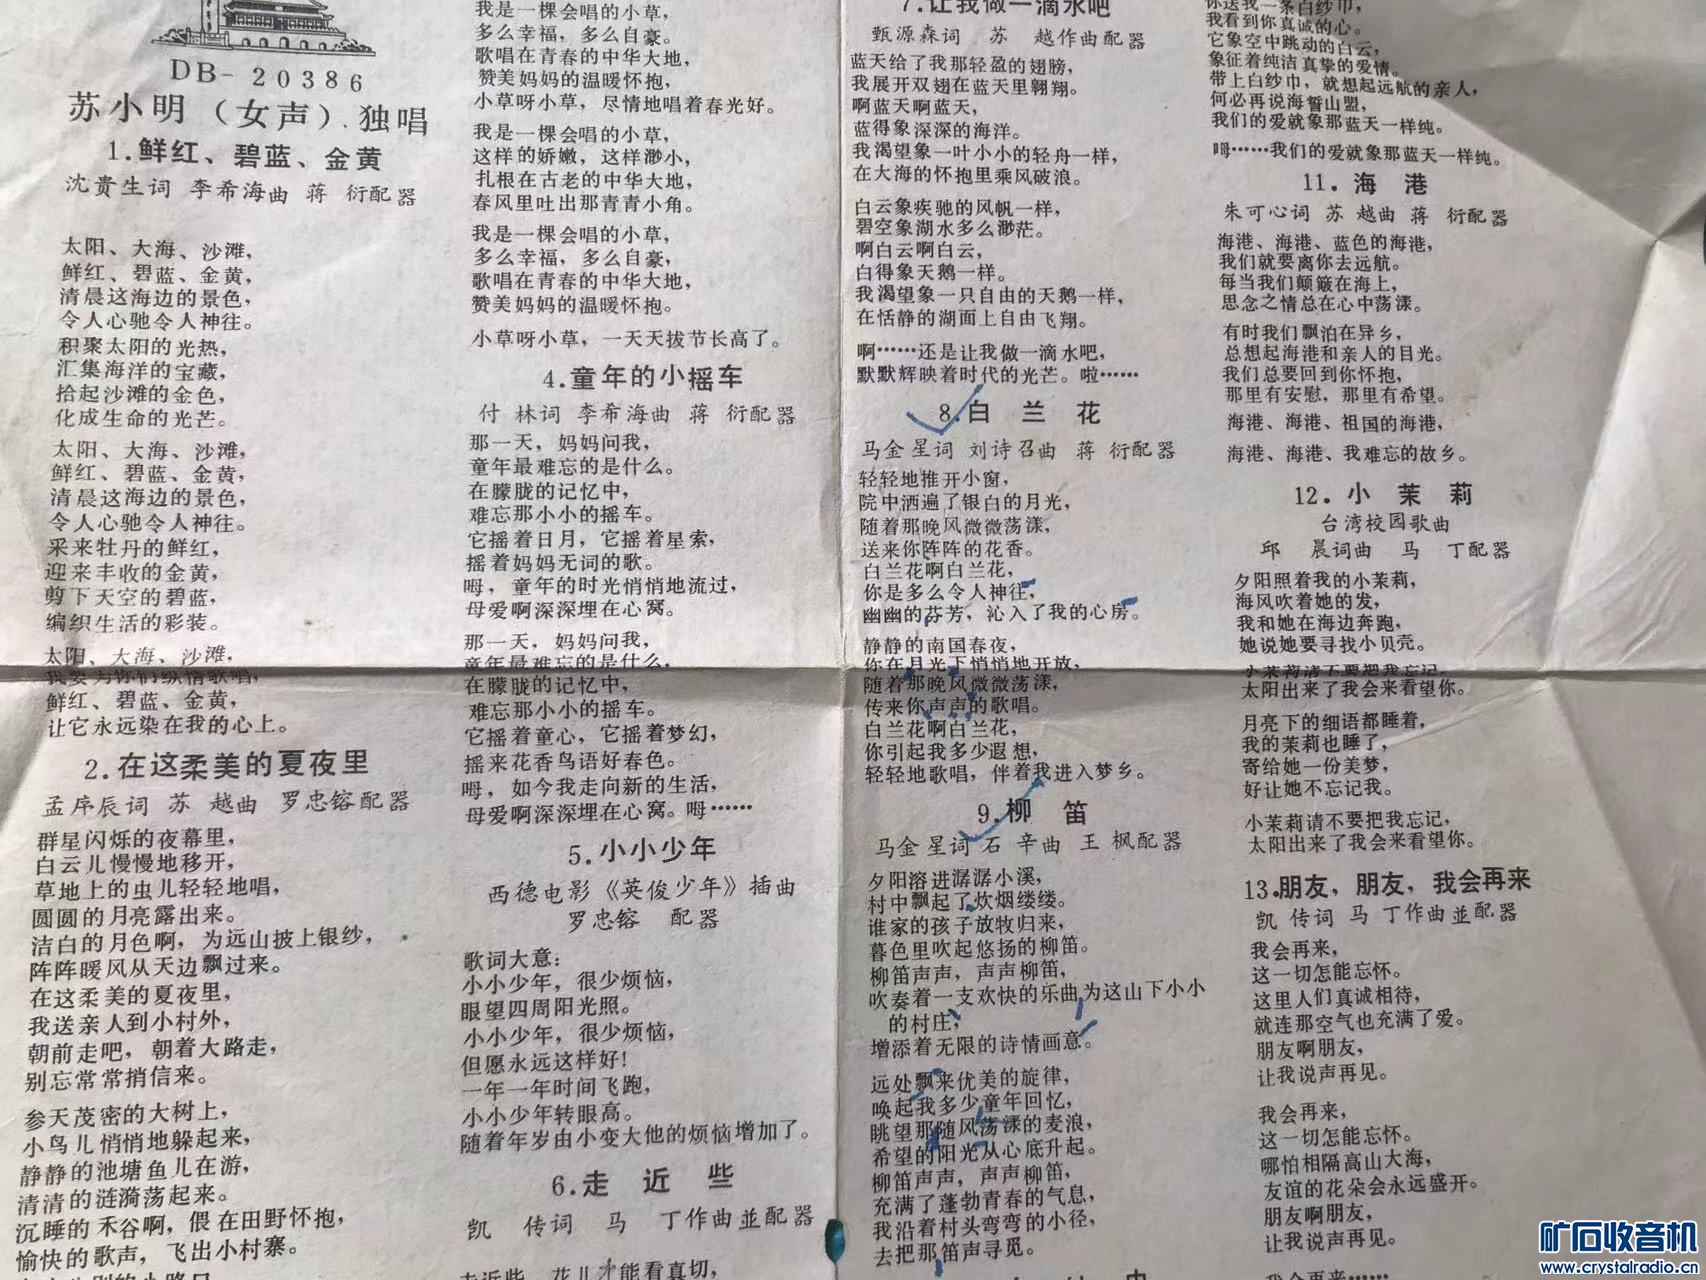 DB-20386
苏小明（女声）独唱
1.鲜红、碧蓝、金黄
沈贵生词 李希海曲 蒋 衍配器
太阳、大海、沙滩，
鲜红、碧蓝、金黄，
清晨这海边的景色，
令人心驰令人神往。
积聚太阳的光热，
汇集海洋的宝藏，
拾起沙滩的金色，
化成生命的光芒。
太阳、大海、沙滩，
鲜红、碧蓝、金黄，
清晨这海边的景色，
令人心驰令人神往。
采来牡丹的鲜红，
迎来丰收的金黄，
剪下天空的碧蓝，
编织生活的彩装。
太阳、大海、沙滩，
我要为你们纵情歌唱，
鲜红、碧蓝、金黄，
让它永远染在我的心上。
2.在这柔美的夏夜里
孟序辰词 苏 越曲 罗忠镕配器
群星闪烁的夜幕里，
白云儿慢慢地移开，
草地上的虫儿轻轻地唱，
圆圆的月亮露出来。
洁白的月色啊，为远山披上银纱，
阵阵暖风从天边飘过来。
在这柔美的夏夜里，
我送亲人到小村外，
朝前走吧，朝着大路走，
别忘常常捎信来。
参天茂密的大树上，
小鸟儿悄悄地躲起来，
静静的池塘鱼儿在游，
清清的涟漪荡起来。
沉睡的禾谷啊，偎在田野怀抱，
愉快的歌声，飞出小村寨。
我是一棵会唱的小草，
多么幸福，多么自豪。
歌唱在青春的中华大地，
赞美妈妈的温暖怀抱，
小草呀小草，尽情地唱着春光好。
我是一棵会唱的小草，
这样的娇嫩，这样渺小，
扎根在古老的中华大地，
春风里吐出那青青小角。
我是一棵会唱的小草，
多么幸福，多么自豪，
歌唱在青春的中华大地，
赞美妈妈的温暖怀抱。
小草呀小草，一天天拔节长高了。
4.童年的小摇车
付 林词 李希海曲 蒋 衍配器
那一天，妈妈问我，
童年最难忘的是什么。
在朦胧的记忆中，
难忘那小小的摇车。
它摇着日月，它摇着星索，
摇着妈妈无词的歌。
呣，童年的时光悄悄地流过，
母爱啊深深埋在心窝。
那一天，妈妈问我，
童年最难忘的是什么，
在朦胧的记忆中，
难忘那小小的摇车。
它摇着童心，它摇着梦幻，
摇来花香鸟语好春色。
呣，如今我走向新的生活，
母爱啊深深埋在心窝。呣……
5.小小少年
西德电影《英俊少年》插曲
罗忠镕 配器
歌词大意：
小小少年，很少烦恼，
眼望四周阳光照。
小小少年，很少烦恼，
但愿永远这样好！
一年一年时间飞跑，
小小少年转眼高。
随着年岁由小变大他的烦恼增加了。
6.走 近 些
凯 传词 马 丁作曲並配器
走近些，花儿才能看真切，
7.让我做一滴水吧
甄源森词 苏 越作曲配器
蓝天给了我那轻盈的翅膀，
我展开双翅在蓝天里翱翔。
啊蓝天啊蓝天，
蓝得象深深的海洋。
我渴望象一叶小小的轻舟一样，
在大海的怀抱里乘风破浪。
白云象疾驰的风帆一样，
碧空象湖水多么渺茫。
啊白云啊白云，
白得象天鹅一样。
我渴望象一只自由的天鹅一样，
在恬静的湖面上自由飞翔。
啊……还是让我做一滴水吧，
默默辉映着时代的光芒。啦……
8.白 兰 花
马金星词 刘诗召曲 蒋 衍配器
轻轻地推开小窗，
院中洒遍了银白的月光，
随着那晚风微微荡漾，
送来你阵阵的花香。
白兰花啊白兰花，
你是多么令人神往，
幽幽的芬芳，沁入了我的心房。
静静的南国春夜，
你在月光下悄悄地开放，
随着那晚风微微荡漾，
传来你声声的歌唱。
白兰花啊白兰花，
你引起我多少遐想，
轻轻地歌唱，伴着我进入梦乡。
9.柳 笛
马金星词 石 辛曲 王 枫配器
夕阳溶进潺潺小溪，
村中飘起了炊烟缕缕。
谁家的孩子放牧归来，
暮色里吹起悠扬的柳笛。
柳笛声声，声声柳笛，
吹奏着一支欢快的乐曲为这山下小小
的村庄，
增添着无限的诗情画意。
远处飘来优美的旋律，
唤起我多少童年回忆，
眺望那随风荡漾的麦浪，
希望的阳光从心底升起。
柳笛声声，声声柳笛，
充满了蓬勃青春的气息，
我沿着村头弯弯的小径，
去把那笛声寻觅。
你送我一条白纱巾，
我看到你真诚的心。
它象空中跳动的白云，
象征着纯洁真挚的爱情。
带上白纱巾，就想起远航的亲人，
何必再说海誓山盟，
我们的爱就象那蓝天一样纯。
呣……我们的爱就象那蓝天一样纯。
11.海 港
朱可心词 苏 越曲 蒋 衍配器
海港、海港、蓝色的海港，
我们就要离你去远航。
每当我们颠簸在海上，
思念之情总在心中荡漾。
有时我们飘泊在异乡，
总想起海港和亲人的目光。
我们总要回到你怀抱，
那里有安慰，那里有希望。
海港、海港、祖国的海港，
海港、海港、我难忘的故乡。
12.小 茉 莉
台湾校园歌曲
邱 晨词曲 马 丁配器
夕阳照着我的小茉莉，
海风吹着她的发，
我和她在海边奔跑，
她说她要寻找小贝壳。
小茉莉请不要把我忘记，
太阳出来了我会来看望你。
月亮下的细语都睡着，
我的茉莉也睡了，
寄给她一份美梦，
好让她不忘记我。
小茉莉请不要把我忘记，
太阳出来了我会来看望你。
13.朋友，朋友，我会再来
凯 传词 马 丁作曲並配器
我会再来，
这一切怎能忘怀。
这里人们真诚相待，
就连那空气也充满了爱。
朋友啊朋友，
让我说声再见。
我会再来，
这一切怎能忘怀。
哪怕相隔高山大海，
友谊的花朵会永远盛开。
朋友啊朋友，
让我说声再见。
我会再来……
矿石收音机
www.crystalradio.cn